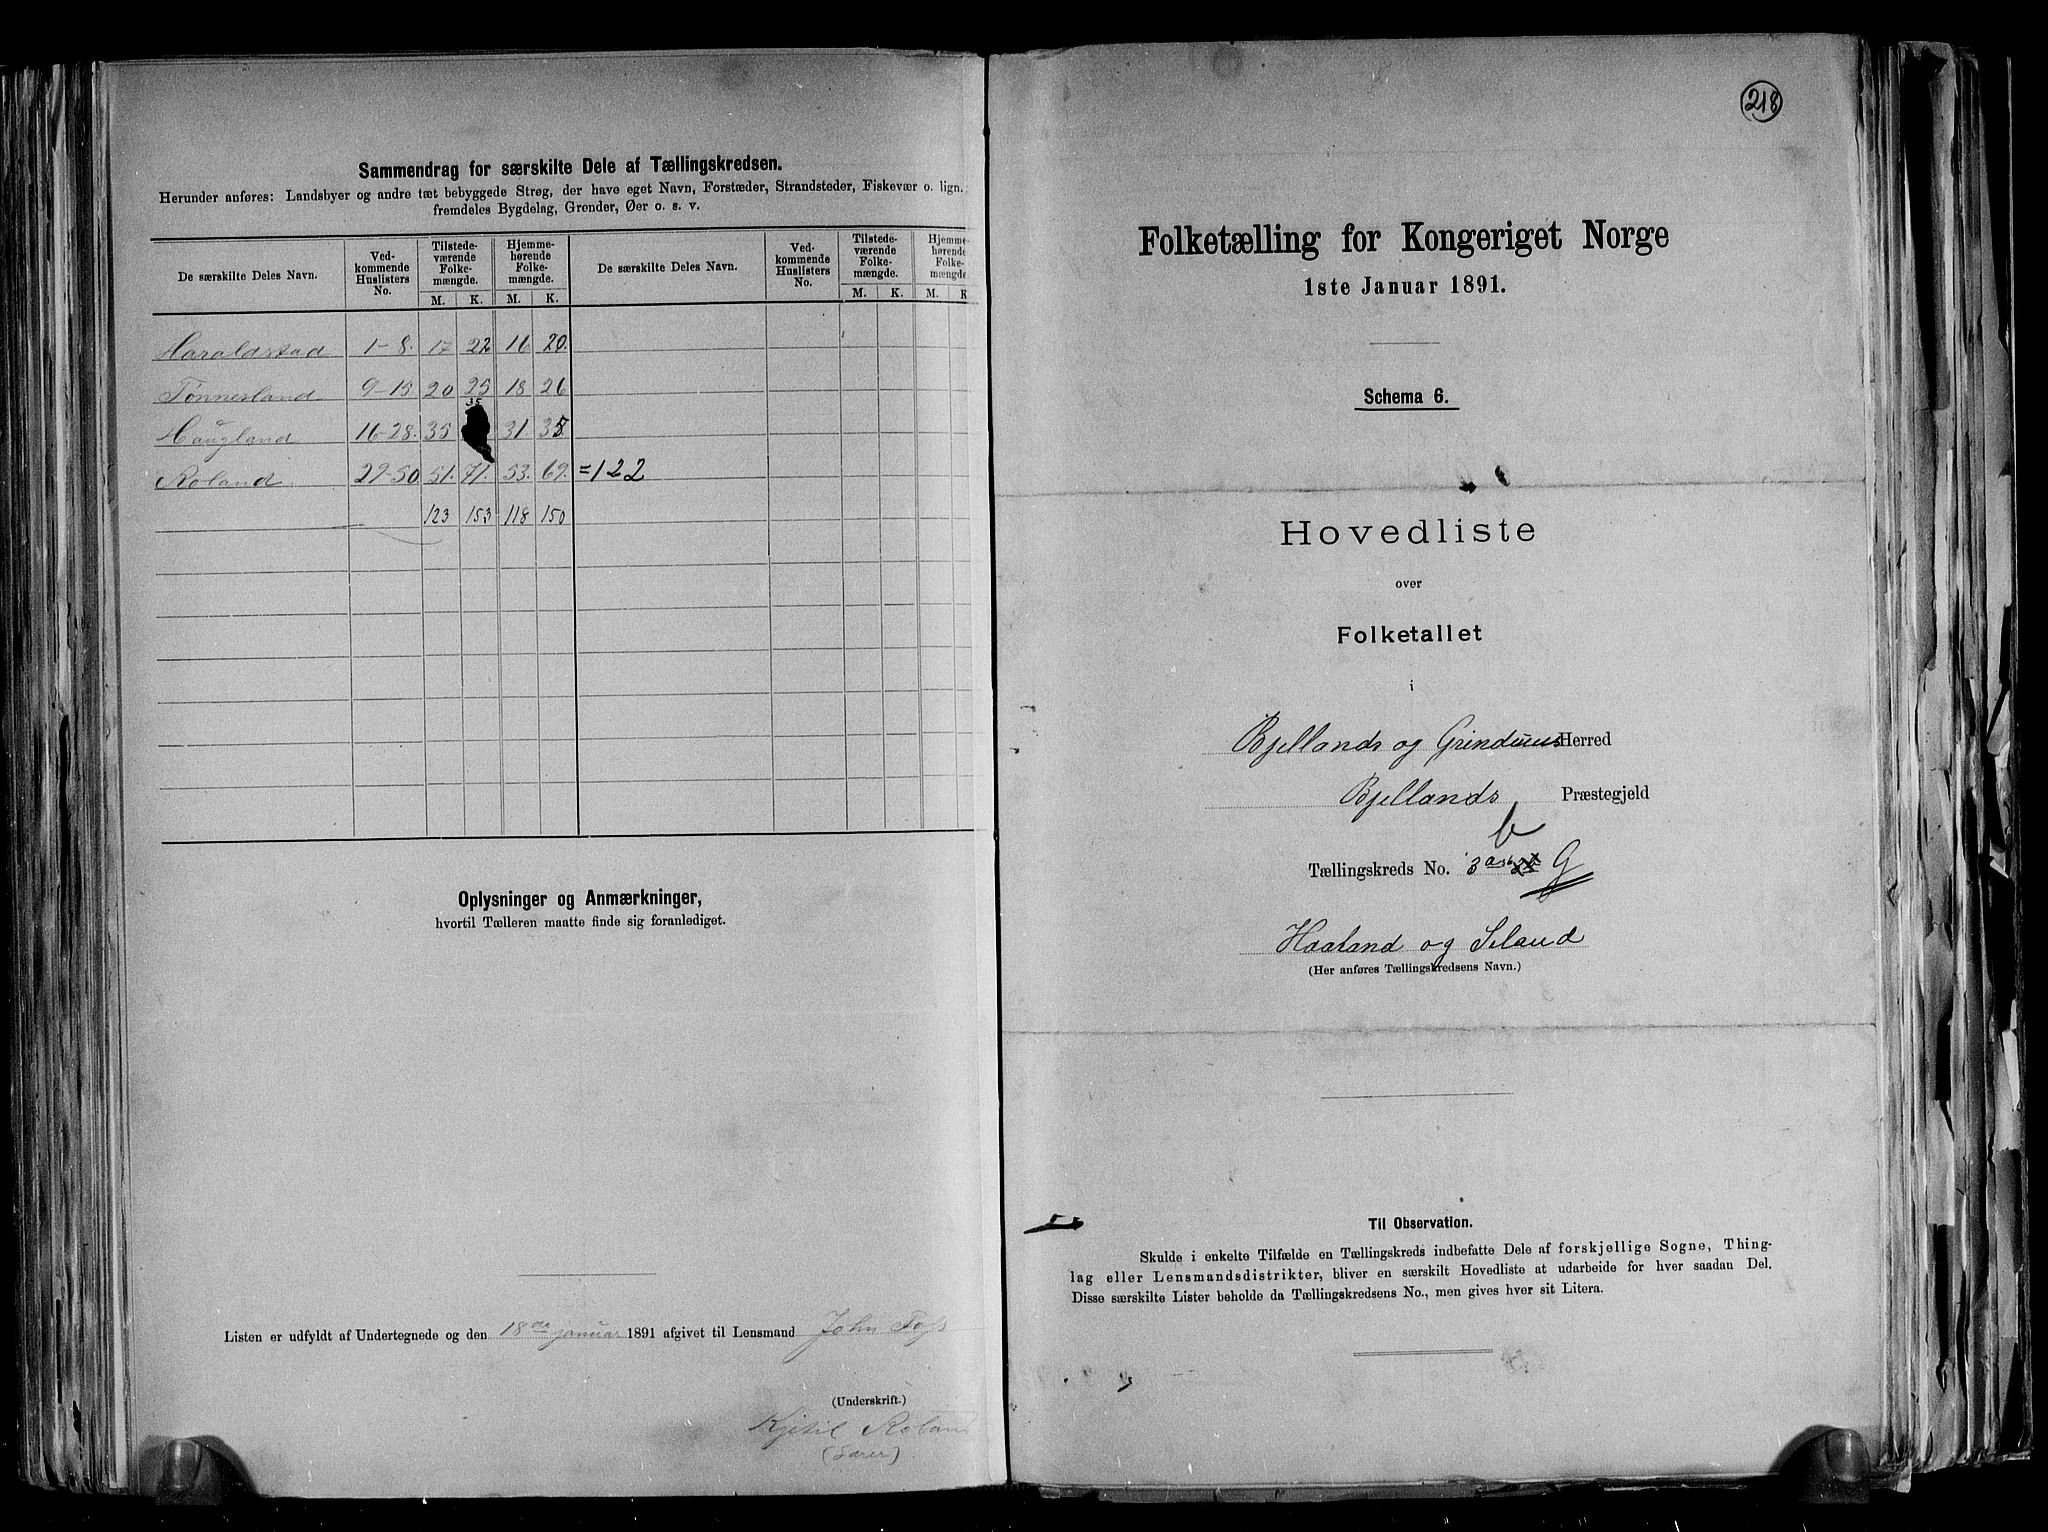 Sammendrag for særskilte Dele af Tællingskredsen.
Herunder anføres: Landsbyer og andre tæt bebyggede Strøg, der have eget Navn, Forstæder, Strandsteder, Fiskevær o. lign.;
fremdeles Bygdelag, Grender, Øer o. s. v.
De særskilte Deles Navn. Vedkommende Huslisters No. Tilstedeværende Folkemængde. M. K. Hjemmehørende Folkemængde. M. K. De særskilte Deles Navn. Vedkommende Huslisters No. Tilstedeværende Folkemængde. M. K. Hjemmehørende Folkemængde M. K
Haraldstad 1-8. 17 22 16 20.
Tønnesland 9-15 20 25 18 26
Haugland 16-28. 35 35 31. 35.
Roland 29-50 51. 71. 53. 69. =122
123 153 118 150
Oplysninger og Anmærkninger,
hvortil Tælleren maatte finde sig foranlediget.
Listen er udfyldt af Undertegnede og den 18de januar 1891 afgivet til Lensmand John Foss
(Underskrift.)
Kjetil Roland
(Lærer)
218
Folketælling for Kongeriget Norge
1ste Januar 1891.
Schema 6.
Hovedliste
over
Folketallet
i
Bjellands og Grindums Herred
Bjellands Præstegjeld
b
Tællingskreds No. 3a G
Haaland og Seland
(Her anføres Tællingskredsens Navn.)
Til Observation.
Skulde i enkelte Tilfælde en Tællingskreds indbefatte Dele af forskjellige Sogne, Thing-
lag eller Lensmandsdistrikter, bliver en særskilt Hovedliste at udarbeide for hver saadan Del.
Disse særskilte Lister beholde da Tællingskredsens No., men gives hver sit Litera.